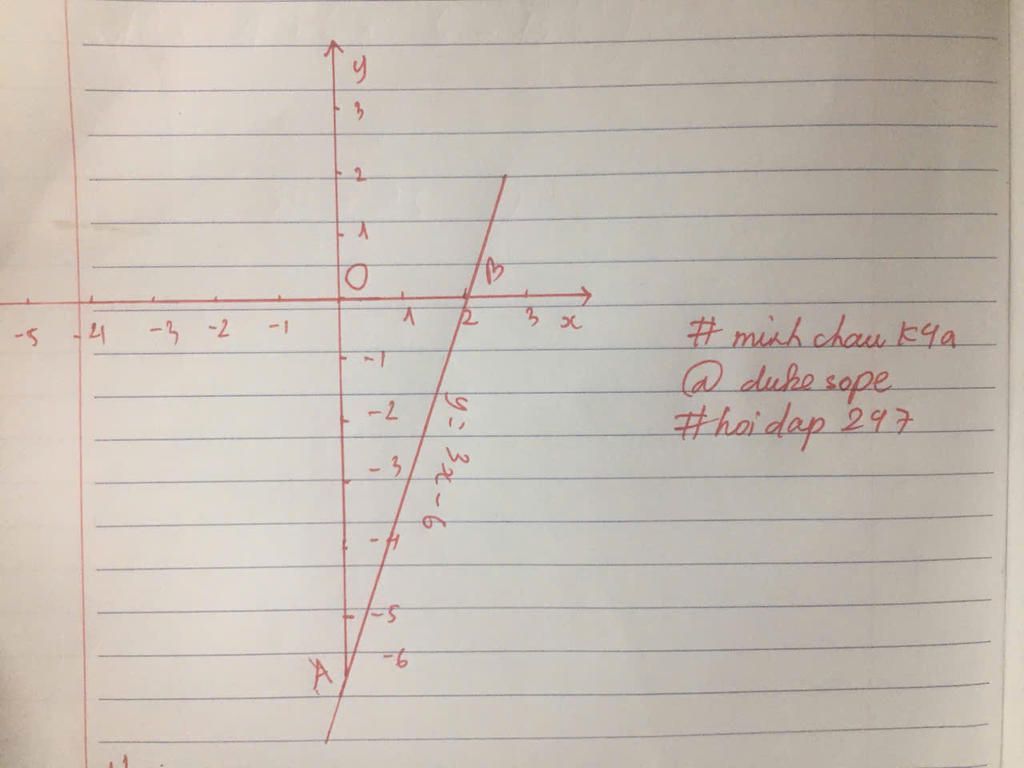 y
3
2
1
O
B
-5 -4 -3 -2 -1 1 2 3 x
-1
-2
-3
-4
-5
-6
A
y = 3x - 6
# minh chau k4a
@ duke sope
#hoidap 247